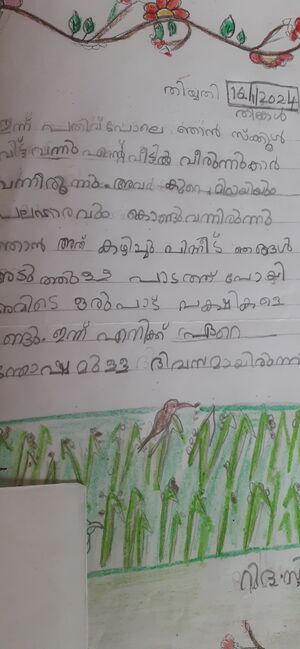 തിയ്യതി 16/1/2024
തിങ്കൾ
ഇന്ന് പതിവ് പോലെ ഞാൻ സ്ക്കൂൾ
വിട്ട് വന്നു വീട്ടിൽ വിരുന്നുകാർ
വന്നിരുന്നു. അവർ കുറെ മിഠായിയും
പലഹാരവും കൊണ്ടുവന്നിരുന്നു
ഞാൻ അത് കഴിച്ചു പിന്നീട് ഞങ്ങൾ
അടുത്തുള്ള പാടത്ത് പോയി
അവിടെ ഒരുപാട് പക്ഷികളെ
കണ്ടു. ഇന്ന് എനിക്ക് ഏറെ
സന്തോഷമുള്ള ദിവസമായിരുന്നു